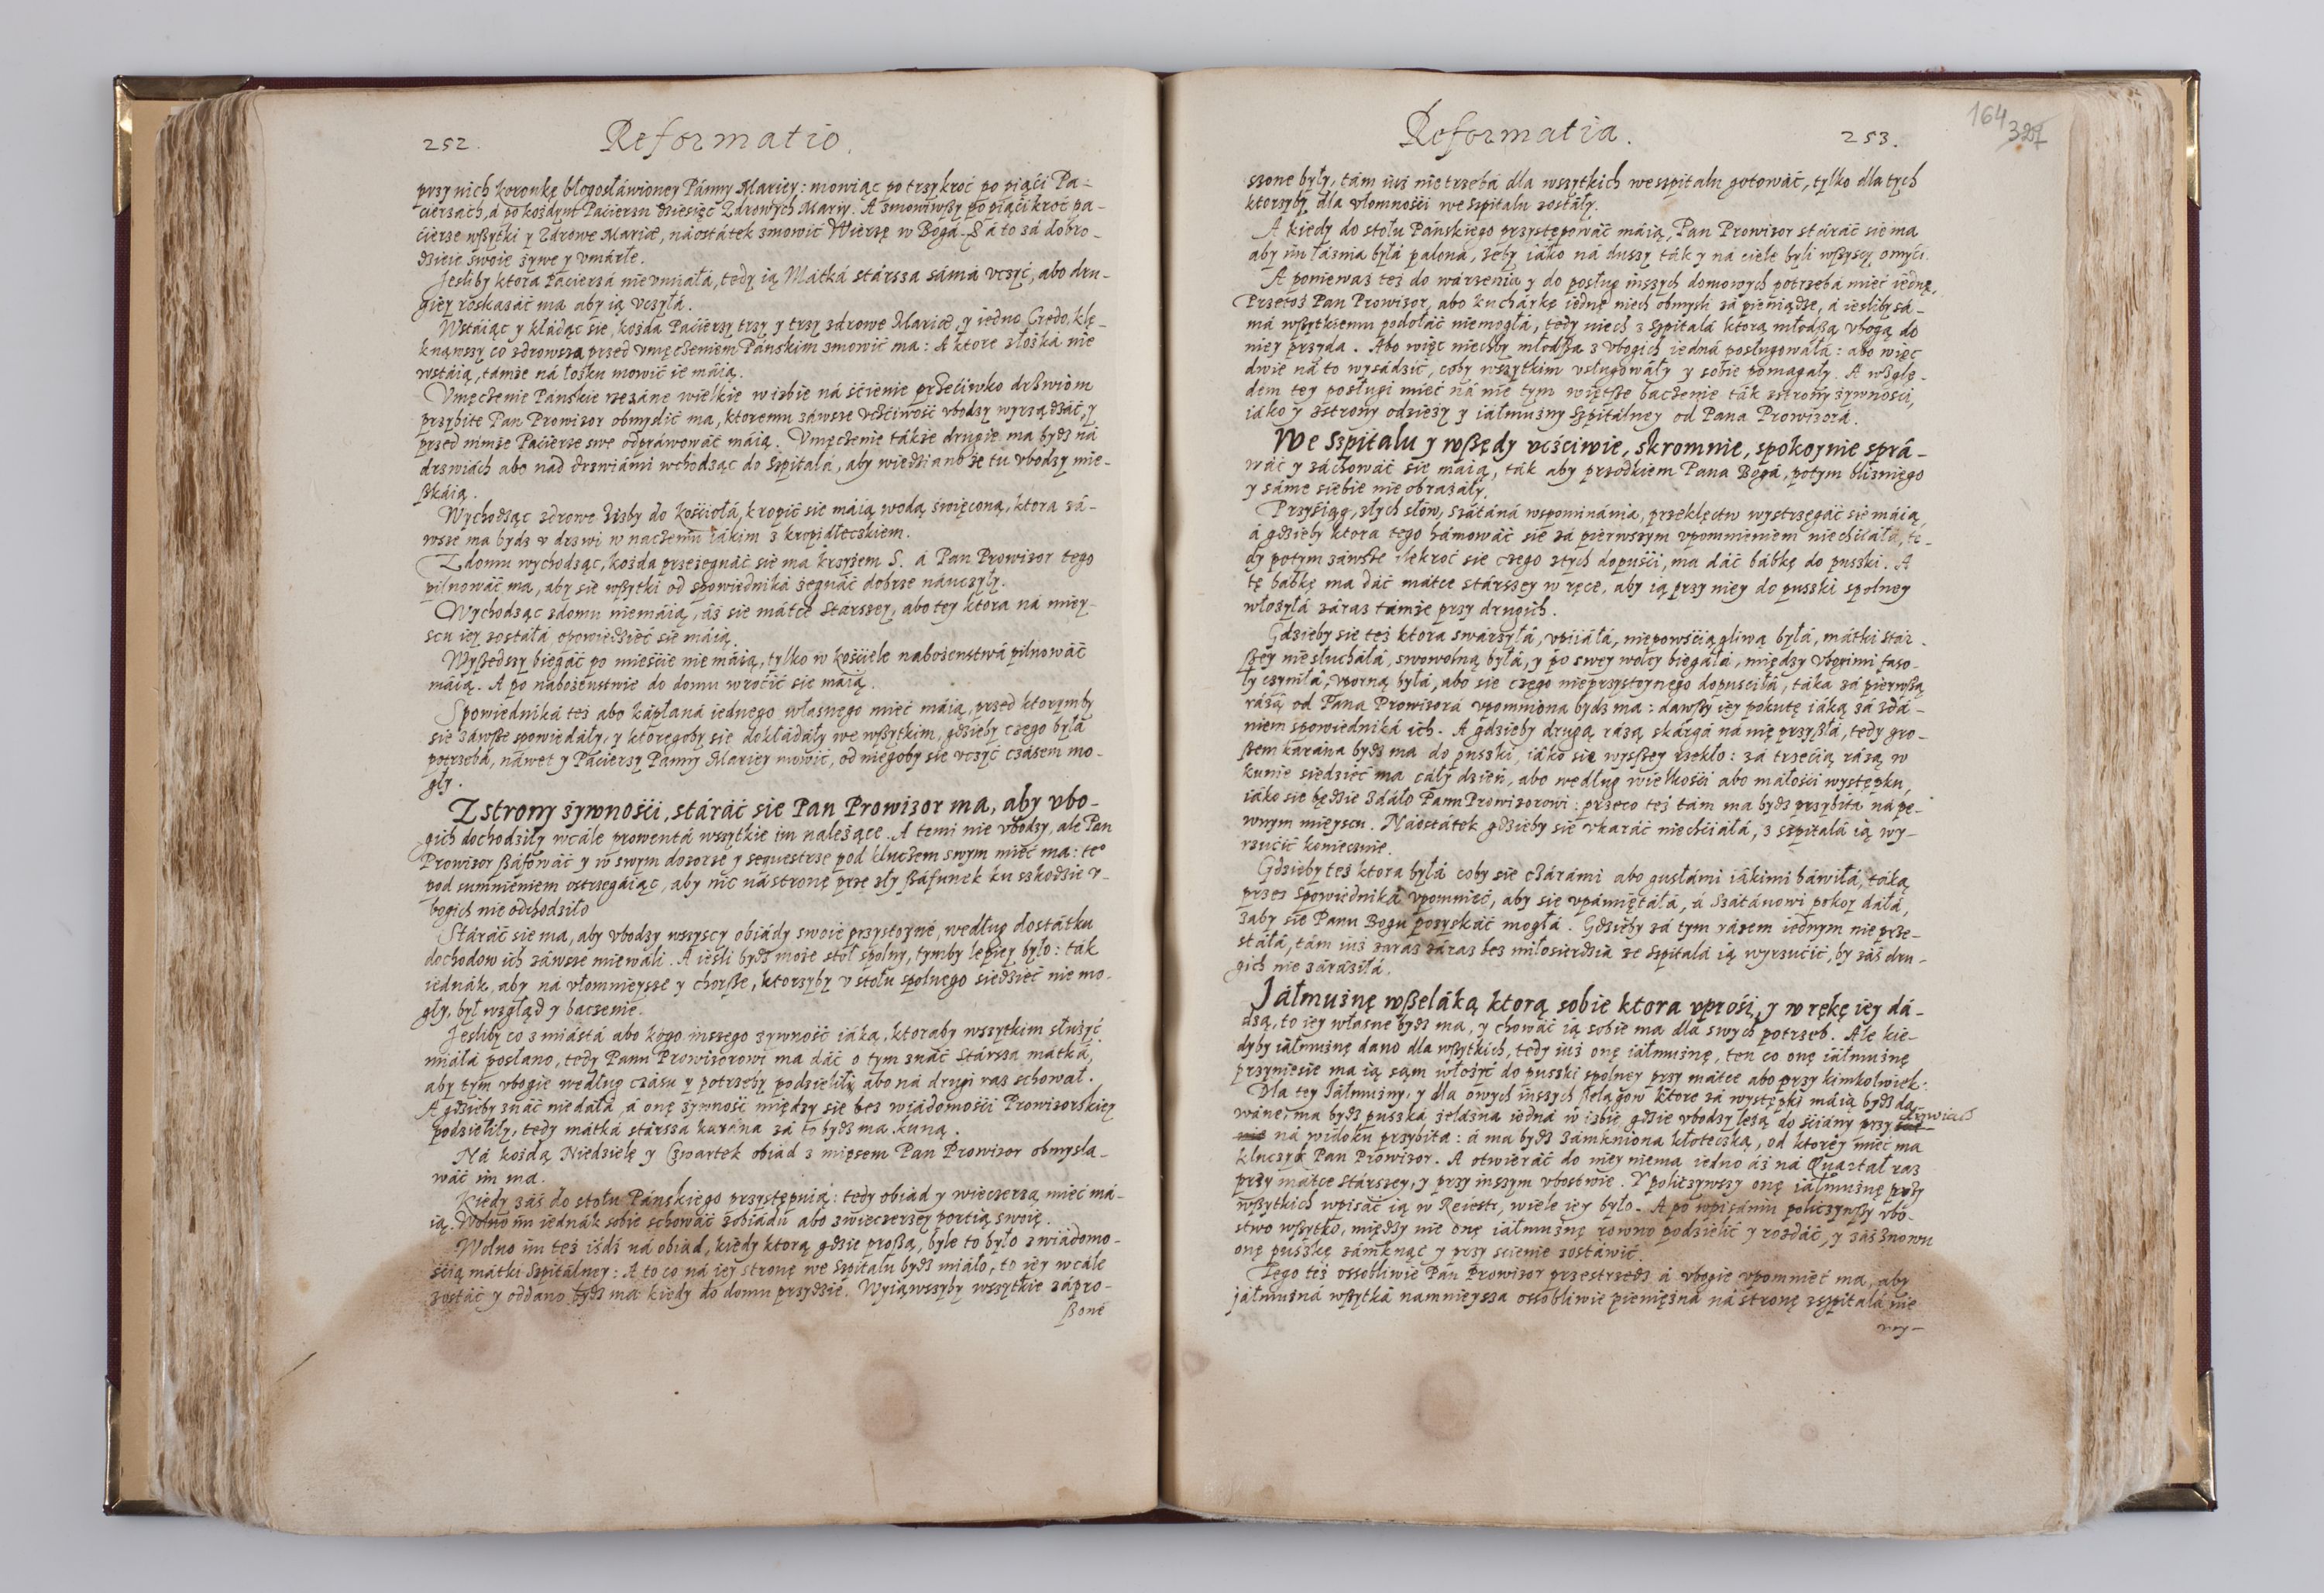 252. Reformatio.
przy nich koronkę błogosłáwioney Pánny Mariey: mowiąc po trzykroć po piąći Pa-
ćierzách, á po kożdym Paćierzu dziesięć Zdrowych Mariy. A zmowiwßy po piąći kroć pa-
ćierze wßytki y Zdrowe Mariæ, náostátek zmowić Wierzę w Boga. Y á to zá dobro-
dzieie swoie żywe y vmárłe.
Jesliby ktora Páćierzá nie vmiałá, tedy ią Mátká stársza sámá vczyć, abo dru-
giey roskazáć ma aby ią vczyłá.
Wstáiąc y kłádąc się, kożda Paćierzy trzy y trzy zdrowe Mariæ, y iedno Credo, klę-
knąwszy co zdrowsza przed vmęczeniem Pánskim zmowić ma: A ktore złożká nie
wstáią, támże ná łożku mowić ie máią.
Vmęczenie Pánskie rzezáne wielkie w izbie ná śćienie przećiwko drzwiom
przybite Pan Prowizor obmyślić ma, ktoremu záwsze vczćiwość vbodzy wyrządzáć, y
przed nimże Paćierze swe odpráwowáć máią. Vmęczenie tákże drugie ma bydz ná
drzwiách abo nád drzwiámi wchodząc do szpitalá, aby wiedziano że tu vbodzy mie-
ßkáią.
Wychodząc zdrowe Izby do kośćiołá, kropić sie máią wodą święconą, ktora zá-
wsze ma bydz v drzwi w naczeniu iákim z kropidłeczkiem.
Z domu wychodząc, kożda przeżegnáć sie ma krzyżem S. á Pan Prowizor tego
pilnowáć ma, aby sie wßytki od spowiedniká żegnáć dobrze náuczyły.
Wychodząc zdomu niemáią, áż sie mátce stárszey, abo tey ktora ná miey-
scu iey zostáłá opowiedzieć sie máią.
Wyßedszy biegáć po mieśćie nie máią, tylko w kośćiele nabożenstwá pilnowáć
máią. A po nabożenstwie do domu wroćić sie máią.
Spowiedniká też abo kápłaná iednego własnego mieć máią, przed ktorymby
sie záwße spowiedáły, y ktoregoby sie dokłádáły we wßytkim, gdzieby czego byłá
potrzebá, náwet y Páćierzy Panny Mariey mowić, od niegoby sie vczyć czásem mo-
gły.
Z strony żywnośći, stáráć sie Pan Prowizor ma, aby vbo-
gich dochodziły wcále prowentá wszytkie im należące. A temi nie vbodzy, ale Pan
Prowizor ßáfowáć y w swym dozorze y sequestrze pod kluczem swym mieć ma: teº
pod sumnieniem ostrzegáiąc, aby nic ná stronę prze zły ßáfunek ku szkodzie v-
bogich nie odchodziło
Stáráć sie ma, aby vbodzy wszyscy obiády swoie przystoyne, według dostátku
dochodow ich záwsze miewáli. A iesli bydz może stoł spolny, tymby lepiey było: ták
iednák, aby ná vłomnieysze y chorße, ktorzyby v stołu spolnego siedzieć nie mo-
gły, był wzgląd y baczenie.
Jesliby co z miástá abo kogo inszego żywność iáka, ktoraby wszytkim służyć
miáłá posłano, tedy Panu Prowizorowi ma dáć o tym znáć stársza mátká,
aby tym vbogie według czásu y potrzeby podzielił, abo ná drugi raz schował.
A gdzieby znáć niedáłá, á onę żywność między się bez wiádomośći Prowizorskiey
podzieliły, tedy mátká stársza karána zá to bydz ma kuną.
Ná kożdą Niedzielę y Czwartek obiad z mięsem Pan Prowizor obmyśla-
wáć im ma.
Kiedy záś do stołu Pánskiego przystępuią: tedy obiad y wieczerzą mieć má-
ią. Wolno im iednák sobie schowáć zobiádu abo zwieczerzey portią swoię.
Wolno im też iśdź ná obiad, kiedy ktorą gdzie proßą, byle to było z wiádomo-
śćią mátki Szpitálney: A to co ná iey stronę we Szpitalu bydz miáło, to iey wcále
zostáć y oddano bydz ma kiedy do domu przydzie. Wyiąwszyby wszytkie zápro-
ßone
Reformatia. 253.
164
szone były, tám iuż nie trzebá dla wszytkich we szpitalu gotowáć, tylko dla tych
ktorzyby dla vłomnośći we szpitalu zostáły.
A kiedy do stołu Páńskiego przystępowáć máią, Pan Prowizor stáráć sie ma
aby im łáźnia byłá palona, żeby iáko ná duszy ták y ná ciele byli wßyscy omyći.
A ponieważ też do wárzenia y do posług inszych domowych potrzebá mieć iednę,
Przetoż Pan Prowizor, abo kuchárkę iednę niech obmyśli zá pieniądze, á iesliby sá-
má wßytkiemu podołáć niemogłá, tedy niech z Szpitalá ktorą młodßą vbogą do
niey przyda. Abo więc niechby młodßa z vbogich iedná posługowáłá: abo więc
dwie ná to wysádzić, coby wszytkim vsługowáły y sobie pomagáły. A wzglę-
dem tey posługi mieć ná nie tym więtße baczenie ták zstrony żywnośći,
iáko y zstrony odzieży y iáłmużny Szpitálney od Pana Prowizorá.
We Szpitalu y wßędy vćśćiwie, skromnie, spokoynie sprá-
wáć y záchowáć sie máią, ták aby przodkiem Pana Bogá, potym bliźniego
y sáme siebie nie obrażáły.
Przysiąg, złych słow, szátáná wspominánia, przeklęctw wystrzegáć sie máią,
á gdzieby ktora tego hámowáć sie zá pierwszym vpomnieniem niechćiáłá, te-
dy potym záwsze ilekroć sie czego złych dopuśći, ma dáć bábkę do puszki. A
tę babkę ma dáć mátce stárszey w ręce, aby ią przy niey do puszki spolney
włożyłá záraz támże przy drugich.
Gdzieby sie też ktora swárzyłá, vpiiáłá, niepowśćiągliwą byłá, mátki stár-
ßey niesłucháłá, swowolną byłá, y po swey woley biegáłá, między vbogimi faso-
ły czyniłá, vporną byłá, abo sie czego nieprzystoynego dopuśćiłá, táka zá pierwßą
rázą od Pana Prowizorá vpomniona bydz ma: dawßy iey pokutę iáką zá zdá-
niem spowiedniká ich. A gdzieby drugą rázą skárgá ná nię przyßłá, tedy gro-
ßem karána bydz ma do puszki, iáko się wysßey rzekło: zá trzećią rázą w
kunie siedzieć ma cáły dzień, abo według wielkośći abo máłośći występku,
iáko sie będzie zdáło Panu Prowizorowi: przeco też tám ma bydz przybitá ná pe-
wnym mieyscu. Náostátek gdzieby sie vkaráć niechćiáłá, z szpitalá ią wy-
rzućić koniecznie.
Gdzieby też ktora byłá coby sie czárámi abo gusłámi iákimi báwiłá, táką
przez Spowiedniká vpomnieć, aby sie vpámiętáłá, á Szátánowi pokoy dáłá,
żaby sie Panu Bogu pozyskáć mogłá. Gdzieby zá tym rázem iednym nie prze-
stáłá, tám iuż záraz bez miłosierdzia ze szpitalá ią wyrzućić, by záś dru-
gich nie záráziłá.
Jáłmużnę wßeláką ktorą sobie ktora vprośi, y w rękę iey dá-
dzą, to iey własne bydz ma, y chowáć ią sobie ma dla swych potrzeb. Ale kie-
dyby iáłmużnę dano dla wßytkich, tedy iuż onę iáłmużnę, ten co onę iáłmużnę
przyniesie ma ią sąm włożyć do puszki spolney przy mátce abo przy kimkolwiek:
Dla tey Jáłmużny, y dla owych inszych ßelągow ktore zá występki máią bydz da-
wáne, ma bydz puszká żelázna iedná w izbie gdzie vbodzy leżą do śćiány przy drzwiach
ná widoku przybita: á ma bydz zámkniona kłoteczką, od ktorey mieć ma
kluczyk Pan Prowizor. A otwieráć do niey niema iedno áż ná Quartał raz
przy mátce stárszey, y przy inszym vbostwie. Y policzywszy onę iáłmużnę przy
wßytkich wpisáć ią w Reiestr, wiele iey było. A po wpisániu policzywßy vbo-
stwo wßytko, między nie onę iáłmużnę rowno podzielić y rozdáć, y záś znowu
onę puszkę zámknąć y przy śćienie zostáwić.
Tego też ossobliwie Pan Prowizor przestrzedz á vbogie vpomnieć ma, aby
jáłmużná wßytká namnieysza ossobliwie pieniężna ná stronę zszpitalá nie
wy-